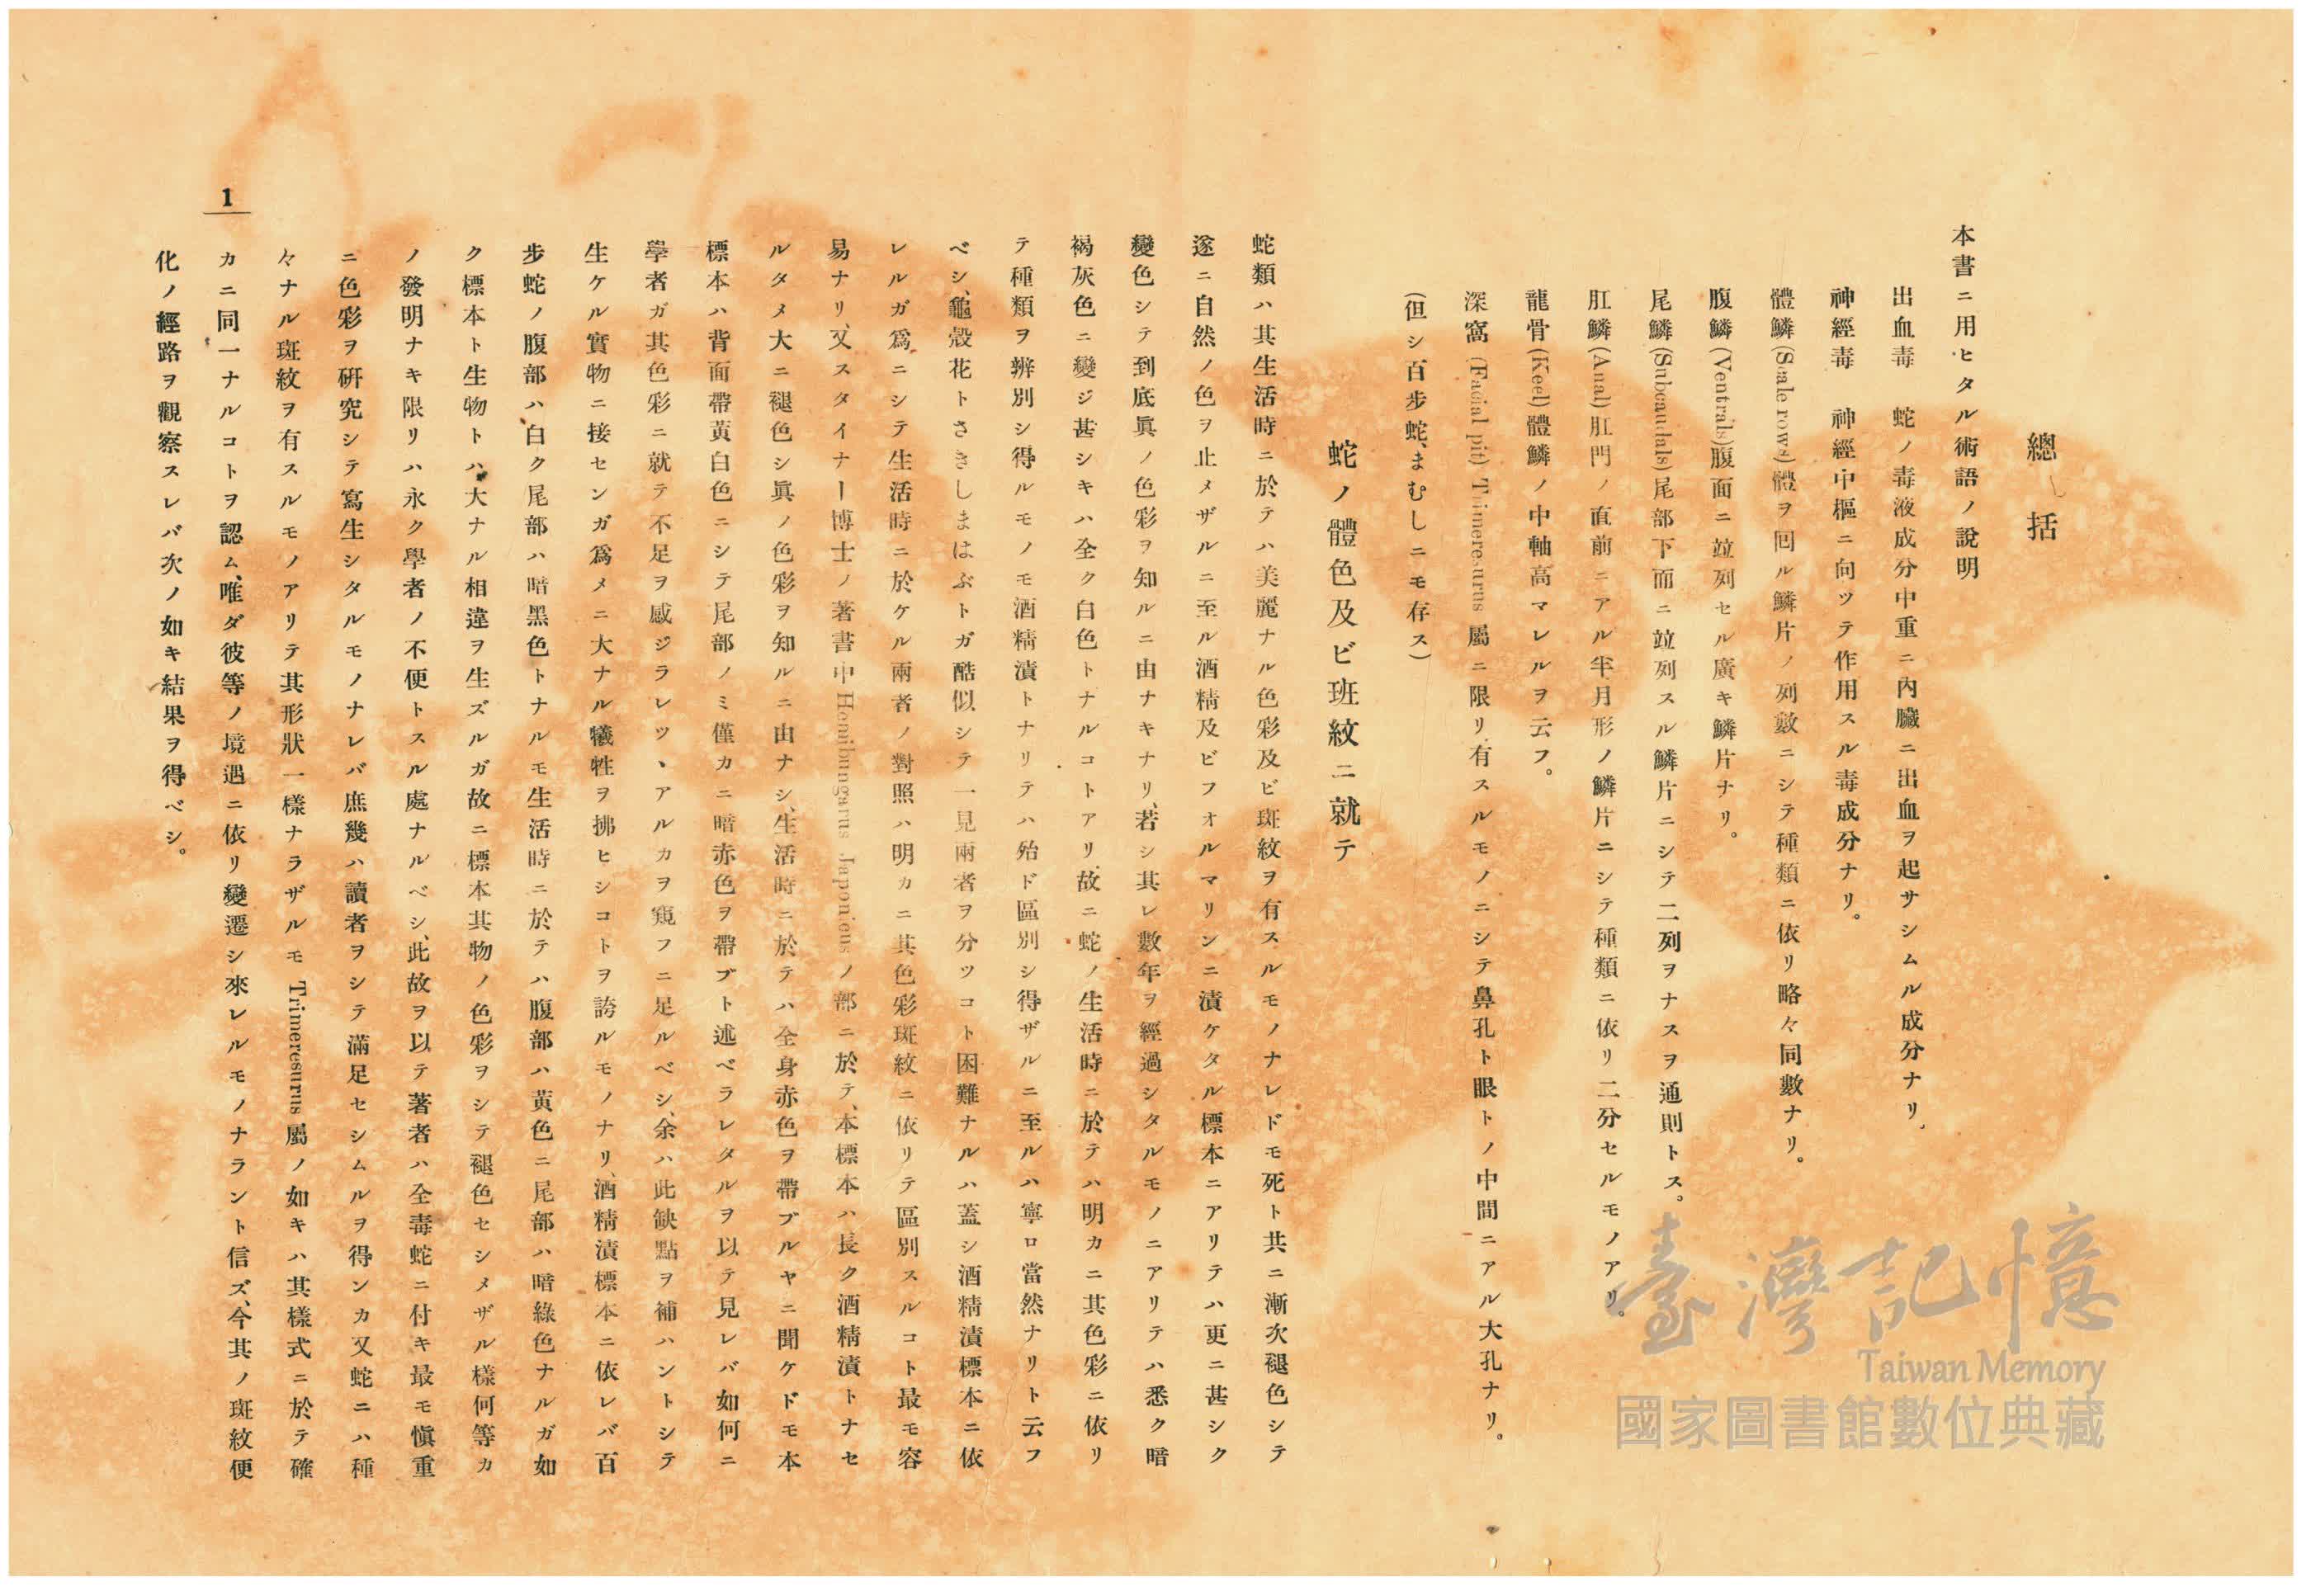 總括
本書ニ用ヒタル術語ノ說明
出血毒　蛇ノ毒液成分中重ニ內臟ニ出血ヲ起サシムル成分ナリ、
神經毒　神經中樞ニ向ツテ作用スル毒成分ナリ。
體鱗(Scale rows)體ヲ囘ル鱗片ノ列數ニシテ種類ニ依リ略々同數ナリ。
腹鱗(Ventrals)腹面ニ竝列セル廣キ鱗片ナリ。
尾鱗(Subcaudals)尾部下面ニ竝列スル鱗片ニシテ二列ヲナスヲ通則トス。
肛鱗(Anal)肛門ノ直前ニアル半月形ノ鱗片ニシテ種類ニ依リ二分セルモノアリ。
龍骨(Keel)體鱗ノ中軸高マレルヲ云フ。
深窩(Facial pit) Trimeresurus 屬ニ限リ有スルモノニシテ鼻孔ト眼トノ中間ニアル大孔ナリ。
(但シ百步蛇、まむしニモ存ス)
蛇ノ體色及ビ班紋ニ就テ
蛇類ハ其生活時ニ於テハ美麗ナル色彩及ビ斑紋ヲ有スルモノナレドモ死ト共ニ漸次褪色シテ
遂ニ自然ノ色ヲ止メザルニ至ル酒精及ビフオルマリンニ漬ケタル標本ニアリテハ更ニ甚シク
變色シテ到底眞ノ色彩ヲ知ルニ由ナキナリ、若シ其レ數年ヲ經過シタルモノニアリテハ悉ク暗
褐灰色ニ變ジ甚シキハ全ク白色トナルコトアリ、故ニ蛇ノ生活時ニ於テハ明カニ其色彩ニ依リ
テ種類ヲ辨別シ得ルモノモ酒精漬トナリテハ殆ド區別シ得ザルニ至ルハ寧ロ當然ナリト云フ
ベシ、龜殼花トさきしまはぶトガ酷似シテ一見兩者ヲ分ツコト困難ナルハ蓋シ酒精漬標本ニ依
レルガ爲ニシテ生活時ニ於ケル兩者ノ對照ハ明カニ其色彩斑紋ニ依リテ區別スルコト最モ容
易ナリ、又スタイナー博士ノ著書中 Hemibungarus Japonicus ノ部ニ於テ、本標本ハ長ク酒精漬トナセ
ルタメ大ニ褪色シ眞ノ色彩ヲ知ルニ由ナシ、生活時ニ於テハ全身赤色ヲ帶ブルヤニ聞ケドモ本
標本ハ背面帶黃白色ニシテ尾部ノミ僅カニ暗赤色ヲ帶ブト述ベラレタルヲ以テ見レバ如何ニ
學者ガ其色彩ニ就テ不足ヲ感ジラレツヽアルカヲ窺フニ足ルベシ、余ハ此缺點ヲ補ハントシテ
生ケル實物ニ接センガ爲メニ大ナル犧牲ヲ拂ヒシコトヲ誇ルモノナリ、酒精漬標本ニ依レバ百
步蛇ノ腹部ハ白ク尾部ハ暗黑色トナルモ生活時ニ於テハ腹部ハ黃色ニ尾部ハ暗綠色ナルガ如
ク標本ト生物トハ大ナル相違ヲ生ズルガ故ニ標本其物ノ色彩ヲシテ褪色セシメザル樣何等カ
ノ發明ナキ限リハ永ク學者ノ不便トスル處ナルベシ、此故ヲ以テ著者ハ全毒蛇ニ付キ最モ愼重
ニ色彩ヲ硏究シテ寫生シタルモノナレバ庶幾ハ讀者ヲシテ滿足セシムルヲ得ンカ又蛇ニハ種
々ナル斑紋ヲ有スルモノアリテ其形狀一樣ナラザルモ Trimeresurus 屬ノ如キハ其樣式ニ於テ確
カニ同一ナルコトヲ認ム、唯ダ彼等ノ境遇ニ依リ變遷シ來レルモノナラント信ズ、今其ノ斑紋便
化ノ經路ヲ觀察スレバ次ノ如キ結果ヲ得ベシ。
1
臺灣記憶
Taiwan Memory
國家圖書館數位典藏